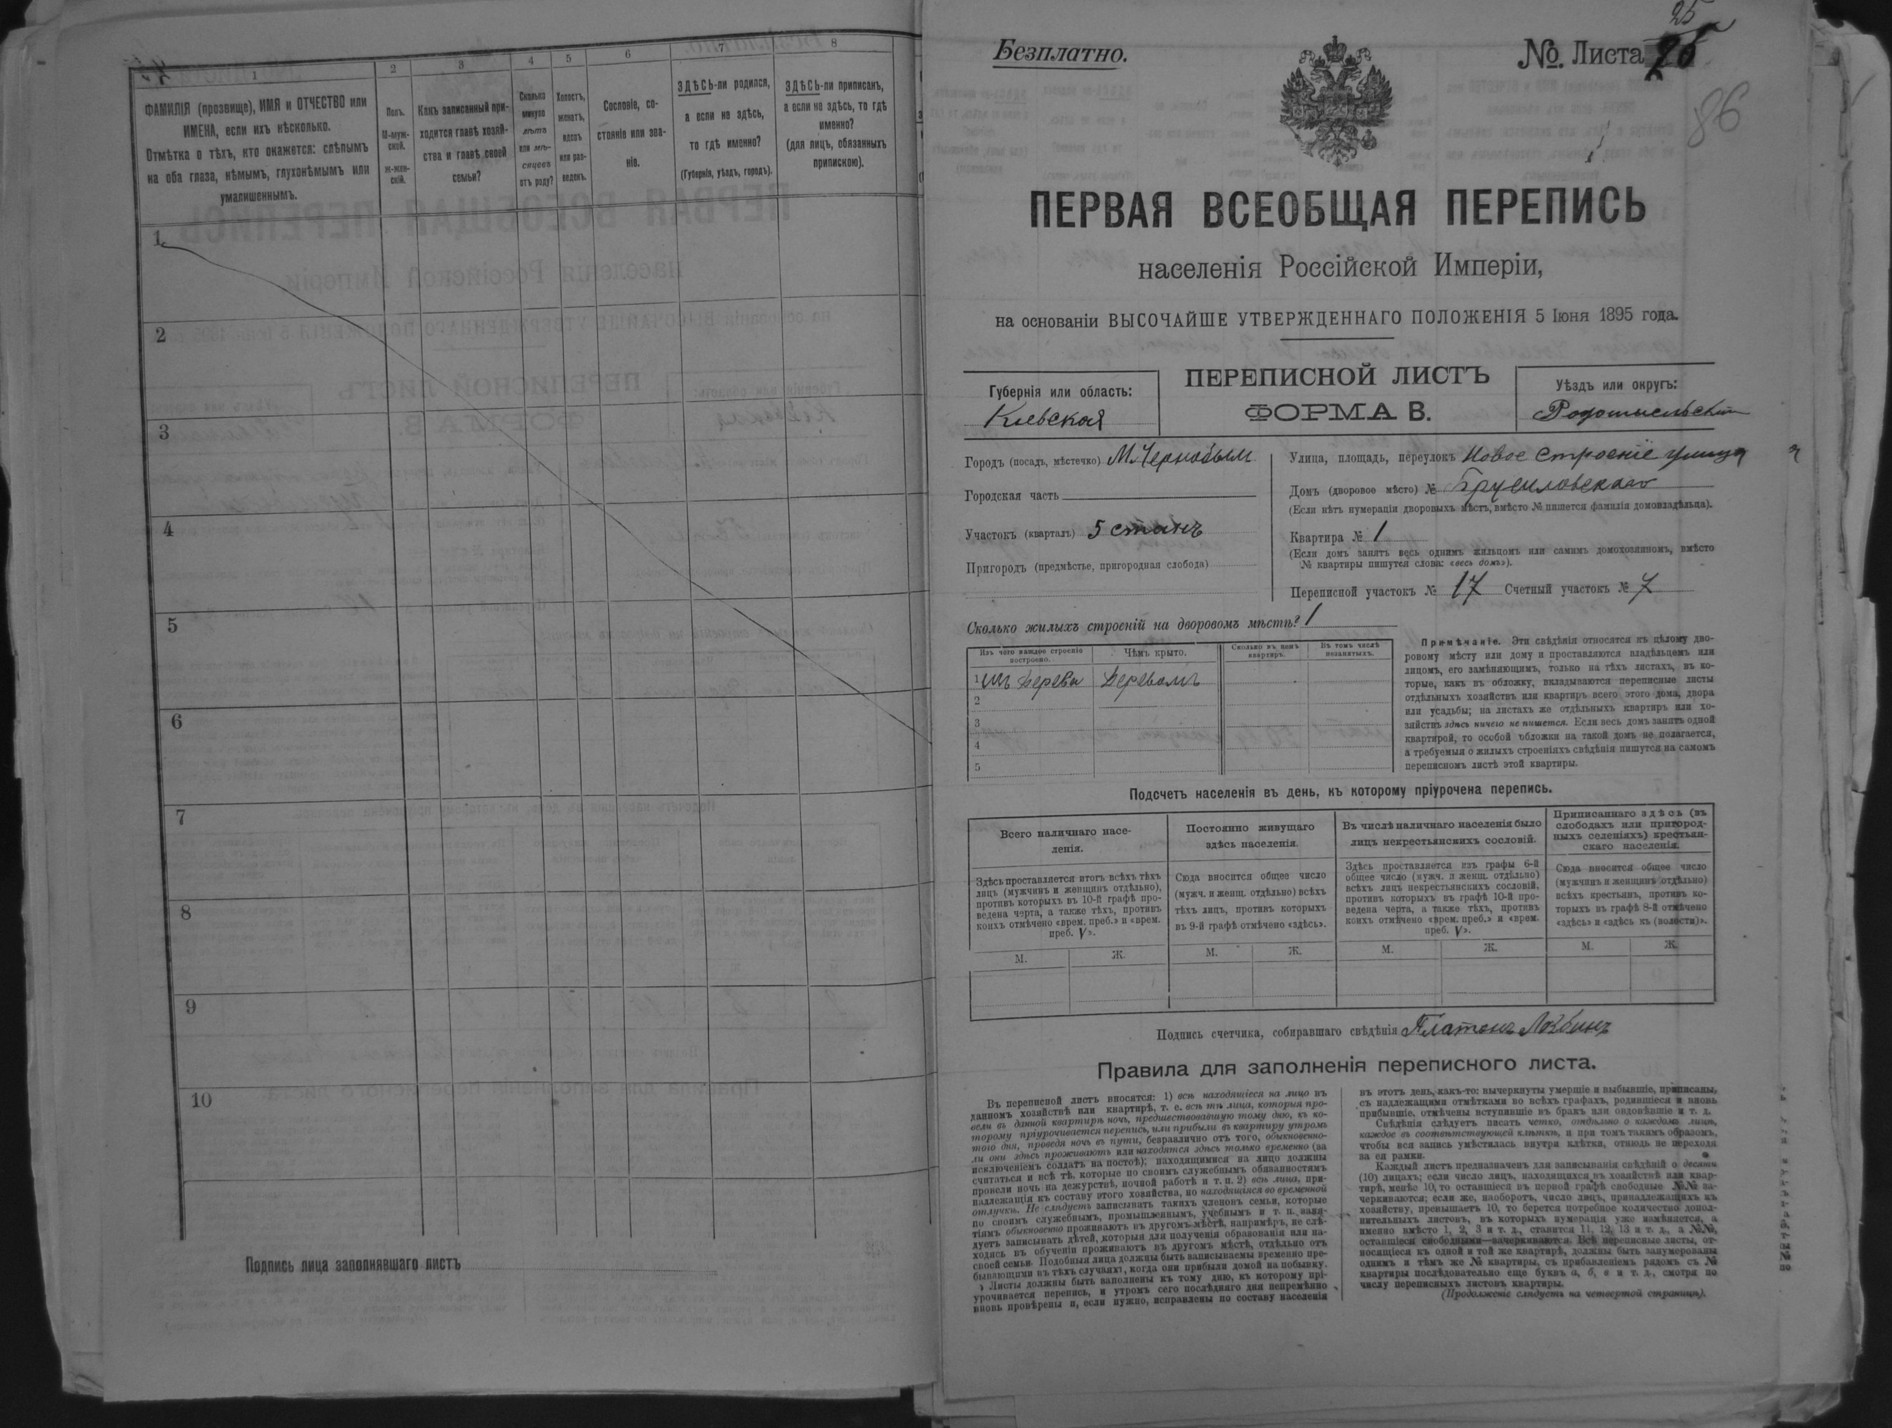 1
2
3
4
5
6
7
8
ФАМИЛІЯ (прозвище), ИМЯ и ОТЧЕСТВО или
ИМЕНА, если ихъ нѣсколько.
Отмѣтка о тѣхъ, кто окажется: слѣпымъ
на оба глаза, нѣмымъ, глухонѣмымъ или
умалишеннымъ.
Полъ.
М-муж-
ской.
ж-жен-
скій.
Какъ записанный при-
ходится главѣ хозяй-
ства и главѣ своей
семьи?
Сколько
минуло
лѣтъ
или мѣ-
сяцевъ
отъ роду?
Холостъ,
женатъ,
вдовъ
или раз-
веденъ.
Сословіе, со-
стояніе или зва-
ніе.
ЗДѢСЬ-ли родился,
а если не здѣсь,
то гдѣ именно?
(Губернія, уѣздъ, городъ).
ЗДѢСЬ-ли приписанъ,
а если не здѣсь, то гдѣ
именно?
(для лицъ, обязанныхъ
припискою).
1
2
3
4
5
6
7
8
9
10
Подпись лица заполнявшаго листъ
25
Безплатно.
№ Листа 25
86
ПЕРВАЯ ВСЕОБЩАЯ ПЕРЕПИСЬ
населенія Россійской Имперіи,
на основаніи ВЫСОЧАЙШЕ УТВЕРЖДЕННАГО ПОЛОЖЕНІЯ 5 Іюня 1895 года.
Губернія или область:
Кіевская
ПЕРЕПИСНОЙ ЛИСТЪ
ФОРМА В.
Уѣздъ или округъ:
Радомысльскій
Городъ (посадъ, мѣстечко) М. Чернобыль
Городская часть
Участокъ (кварталъ) 5 станъ
Пригородъ (предмѣстье, пригородная слобода)
Улица, площадь, переулокъ Новое Строеніе улица
Домъ (дворовое мѣсто) № Брусиловскаго
(Если нѣтъ нумераціи дворовыхъ мѣстъ, вмѣсто № пишется фамилія домовладѣльца).
Квартира № 1
(Если домъ занятъ весь однимъ жильцомъ или самимъ домохозяиномъ, вмѣсто
№ квартиры пишутся слова: «весь домъ»).
Переписной участокъ № 17 Счетный участокъ № 7
Сколько жилыхъ строеній на дворовомъ мѣстѣ? 1
Изъ чего каждое строеніе
построено.
Чѣмъ крыто.
Сколько въ немъ
квартиръ.
Въ томъ числѣ
незанятыхъ.
1 изъ дерева деревомъ
2
3
4
5
Примѣчаніе. Эти свѣдѣнія относятся къ цѣлому дво-
ровому мѣсту или дому и проставляются владѣльцемъ или
лицомъ, его замѣняющимъ, только на тѣхъ листахъ, въ ко-
торые, какъ въ обложку, вкладываются переписные листы
отдѣльныхъ хозяйствъ или квартиръ всего этого дома, двора
или усадьбы; на листахъ же отдѣльныхъ квартиръ или хо-
зяйствъ здѣсь ничего не пишется. Если весь домъ занятъ одной
квартирой, то особой обложки на такой домъ не полагается,
а требуемыя о жилыхъ строеніяхъ свѣдѣнія пишутся на самомъ
переписномъ листѣ этой квартиры.
Подсчетъ населенія въ день, къ которому пріурочена перепись.
Всего наличнаго насе-
ленія.
Здѣсь проставляется итогъ всѣхъ тѣхъ
лицъ (мужчинъ и женщинъ отдѣльно),
противъ которыхъ въ 10-й графѣ про-
ведена черта, а также тѣхъ, противъ
коихъ отмѣчено «врем. преб.» и «врем.
преб. V».
Постоянно живущаго
здѣсь населенія.
Сюда вносится общее число
(мужч. и женщ. отдѣльно) всѣхъ
тѣхъ лицъ, противъ которыхъ
въ 9-й графѣ отмѣчено «здѣсь».
Въ числѣ наличнаго населенія было
лицъ некрестьянскихъ сословій.
Здѣсь проставляется изъ графы 6-й
общее число (мужч. и женщ. отдѣльно)
всѣхъ лицъ некрестьянскихъ сословій,
противъ которыхъ въ графѣ 10-й про-
ведена черта, а также тѣхъ, противъ
коихъ отмѣчено «врем. преб.» и «врем.
преб. V».
Приписаннаго здѣсь (въ
слободахъ или пригород-
ныхъ селеніяхъ) крестьян-
скаго населенія.
Сюда вносится общее число
(мужчинъ и женщинъ отдѣльно)
всѣхъ крестьянъ, противъ ко-
торыхъ въ графѣ 8-й отмѣчено
«здѣсь» и «здѣсь къ (волости)».
М. Ж. М. Ж. М. Ж. М. Ж.
Подпись счетчика, собиравшаго свѣдѣнія Платонъ
Правила для заполненія переписного листа.
Въ переписной листъ вносятся: 1) всѣ находящіеся на лицо въ
данномъ хозяйствѣ или квартирѣ, т. е. всѣ тѣ лица, которыя про-
вели въ данной квартирѣ ночь, предшествовавшую тому дню, къ ко-
торому пріурочивается перепись, или прибыли въ квартиру утромъ
того дня, проведя ночь въ пути, безразлично отъ того, обыкновенно-
ли они здѣсь проживаютъ или находятся здѣсь только временно (за
исключеніемъ солдатъ на постоѣ); находящимися на лицо должны
считаться и всѣ тѣ, которые по своимъ служебнымъ обязанностямъ
провели ночь на дежурствѣ, ночной работѣ и т. п. 2) всѣ лица, при-
надлежащія къ составу этого хозяйства, но находящіяся во временной
отлучкѣ. Не слѣдуетъ записывать такихъ членовъ семьи, которые
по своимъ служебнымъ, промышленнымъ, учебнымъ и т. п. заня-
тіямъ обыкновенно проживаютъ въ другомъ мѣстѣ, напримѣръ, не слѣ-
дуетъ записывать дѣтей, которыя для полученія образованія или на-
ходясь въ обученіи проживаютъ въ другомъ мѣстѣ, отдѣльно отъ
своей семьи. Подобныя лица должны быть записываемы временно пре-
бывающими въ тѣхъ случаяхъ, когда они прибыли домой на побывку.
Листы должны быть заполнены къ тому дню, къ которому прі-
урочивается перепись, и утромъ сего послѣдняго дня непремѣнно
вновь провѣрены и, если нужно, исправлены по составу населенія
въ этотъ день, какъ-то: вычеркнуты умершіе и выбывшіе, приписаны,
съ надлежащими отмѣтками во всѣхъ графахъ, родившіеся и вновь
прибывшіе, отмѣчены вступившіе въ бракъ или овдовѣвшіе и т. д.
Свѣдѣнія слѣдуетъ писать четко, отдѣльно о каждомъ лицѣ,
каждое въ соотвѣтствующей клѣткѣ, и при томъ такимъ образомъ,
чтобы вся запись умѣстилась внутри клѣтки, отнюдь не переходя
за ея рамки.
Каждый листъ предназначенъ для записыванія свѣдѣній о десяти
(10) лицахъ; если число лицъ, находящихся въ хозяйствѣ или квар-
тирѣ, менѣе 10, то оставшіеся въ первой графѣ свободные №№ за-
черкиваются; если же, наоборотъ, число лицъ, принадлежащихъ къ
хозяйству, превышаетъ 10, то берется потребное количество допол-
нительныхъ листовъ, въ которыхъ нумерація уже измѣняется, а
именно вмѣсто 1, 2, 3 и т. д., ставится 11, 12, 13 и т. д., а №№,
оставшіеся свободными—зачеркиваются. Всѣ переписные листы, от-
носящіеся къ одной и той же квартирѣ, должны быть занумерованы
однимъ и тѣмъ же № квартиры, съ прибавленіемъ рядомъ съ №
квартиры послѣдовательно еще буквъ а, б, в и т. д., смотря по
числу переписныхъ листовъ квартиры.
(Продолженіе слѣдуетъ на четвертой страницѣ).